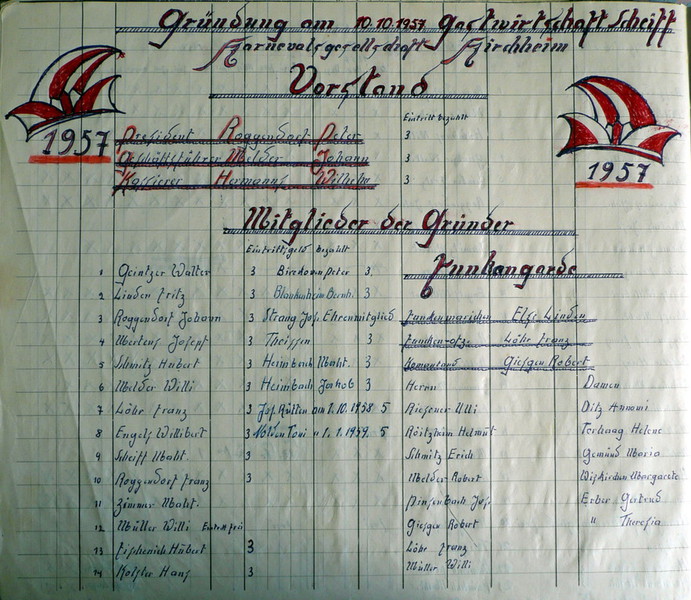 Gründung am 10.10.1957 Gastwirtschaft Scheiff
Karnevalsgesellschaft Kirchheim
Vorstand
Eintritt bezahlt
1957
1957
President Roggendorf Peter 3
Geschäftsführer Melder Johann 3
Kassierer Hermanns Wilhelm 3
Mitglieder der Gründer
Eintrittsgeld bezahlt
Funkengarde
1 Geintzer Walter 3 Birkoven Peter 3
2 Linden Fritz 3 Blankenheim Bernh. 3
3 Roggendorf Johann 3 Strang Jos. Ehrenmitglied Funkenmariechen Else Linden
4 Mertens Josepf 3 Theissen 3 Löhr Franz
5 Schmitz Hubert 3 Heimbach Math. 3 Giesgen Robert
6 Melder Willi 3 Heimbach Jakob 3 Herrn Damen
7 Löhr Franz 3 Jos. Rütten am 1.10.1958 5 Willi Ditz Annemi
8 Engels Willibert 3 Toni " 1.1.1959 5 Röitzheim Helmut Terhaag Helene
9 Scheiff Math. 3 Schmitz Erich Gemünd Maria
10 Roggendorf Franz 3 Melder Robert Margarete
11 Zimmer Math. Jos. Erber Gertrud
12 Müller Willi Eintritt frei Giesgen Robert " Theresia
13 Fischenich Hubert 3 Löhr Franz
14 Kolster Hans 3 Müller Willi